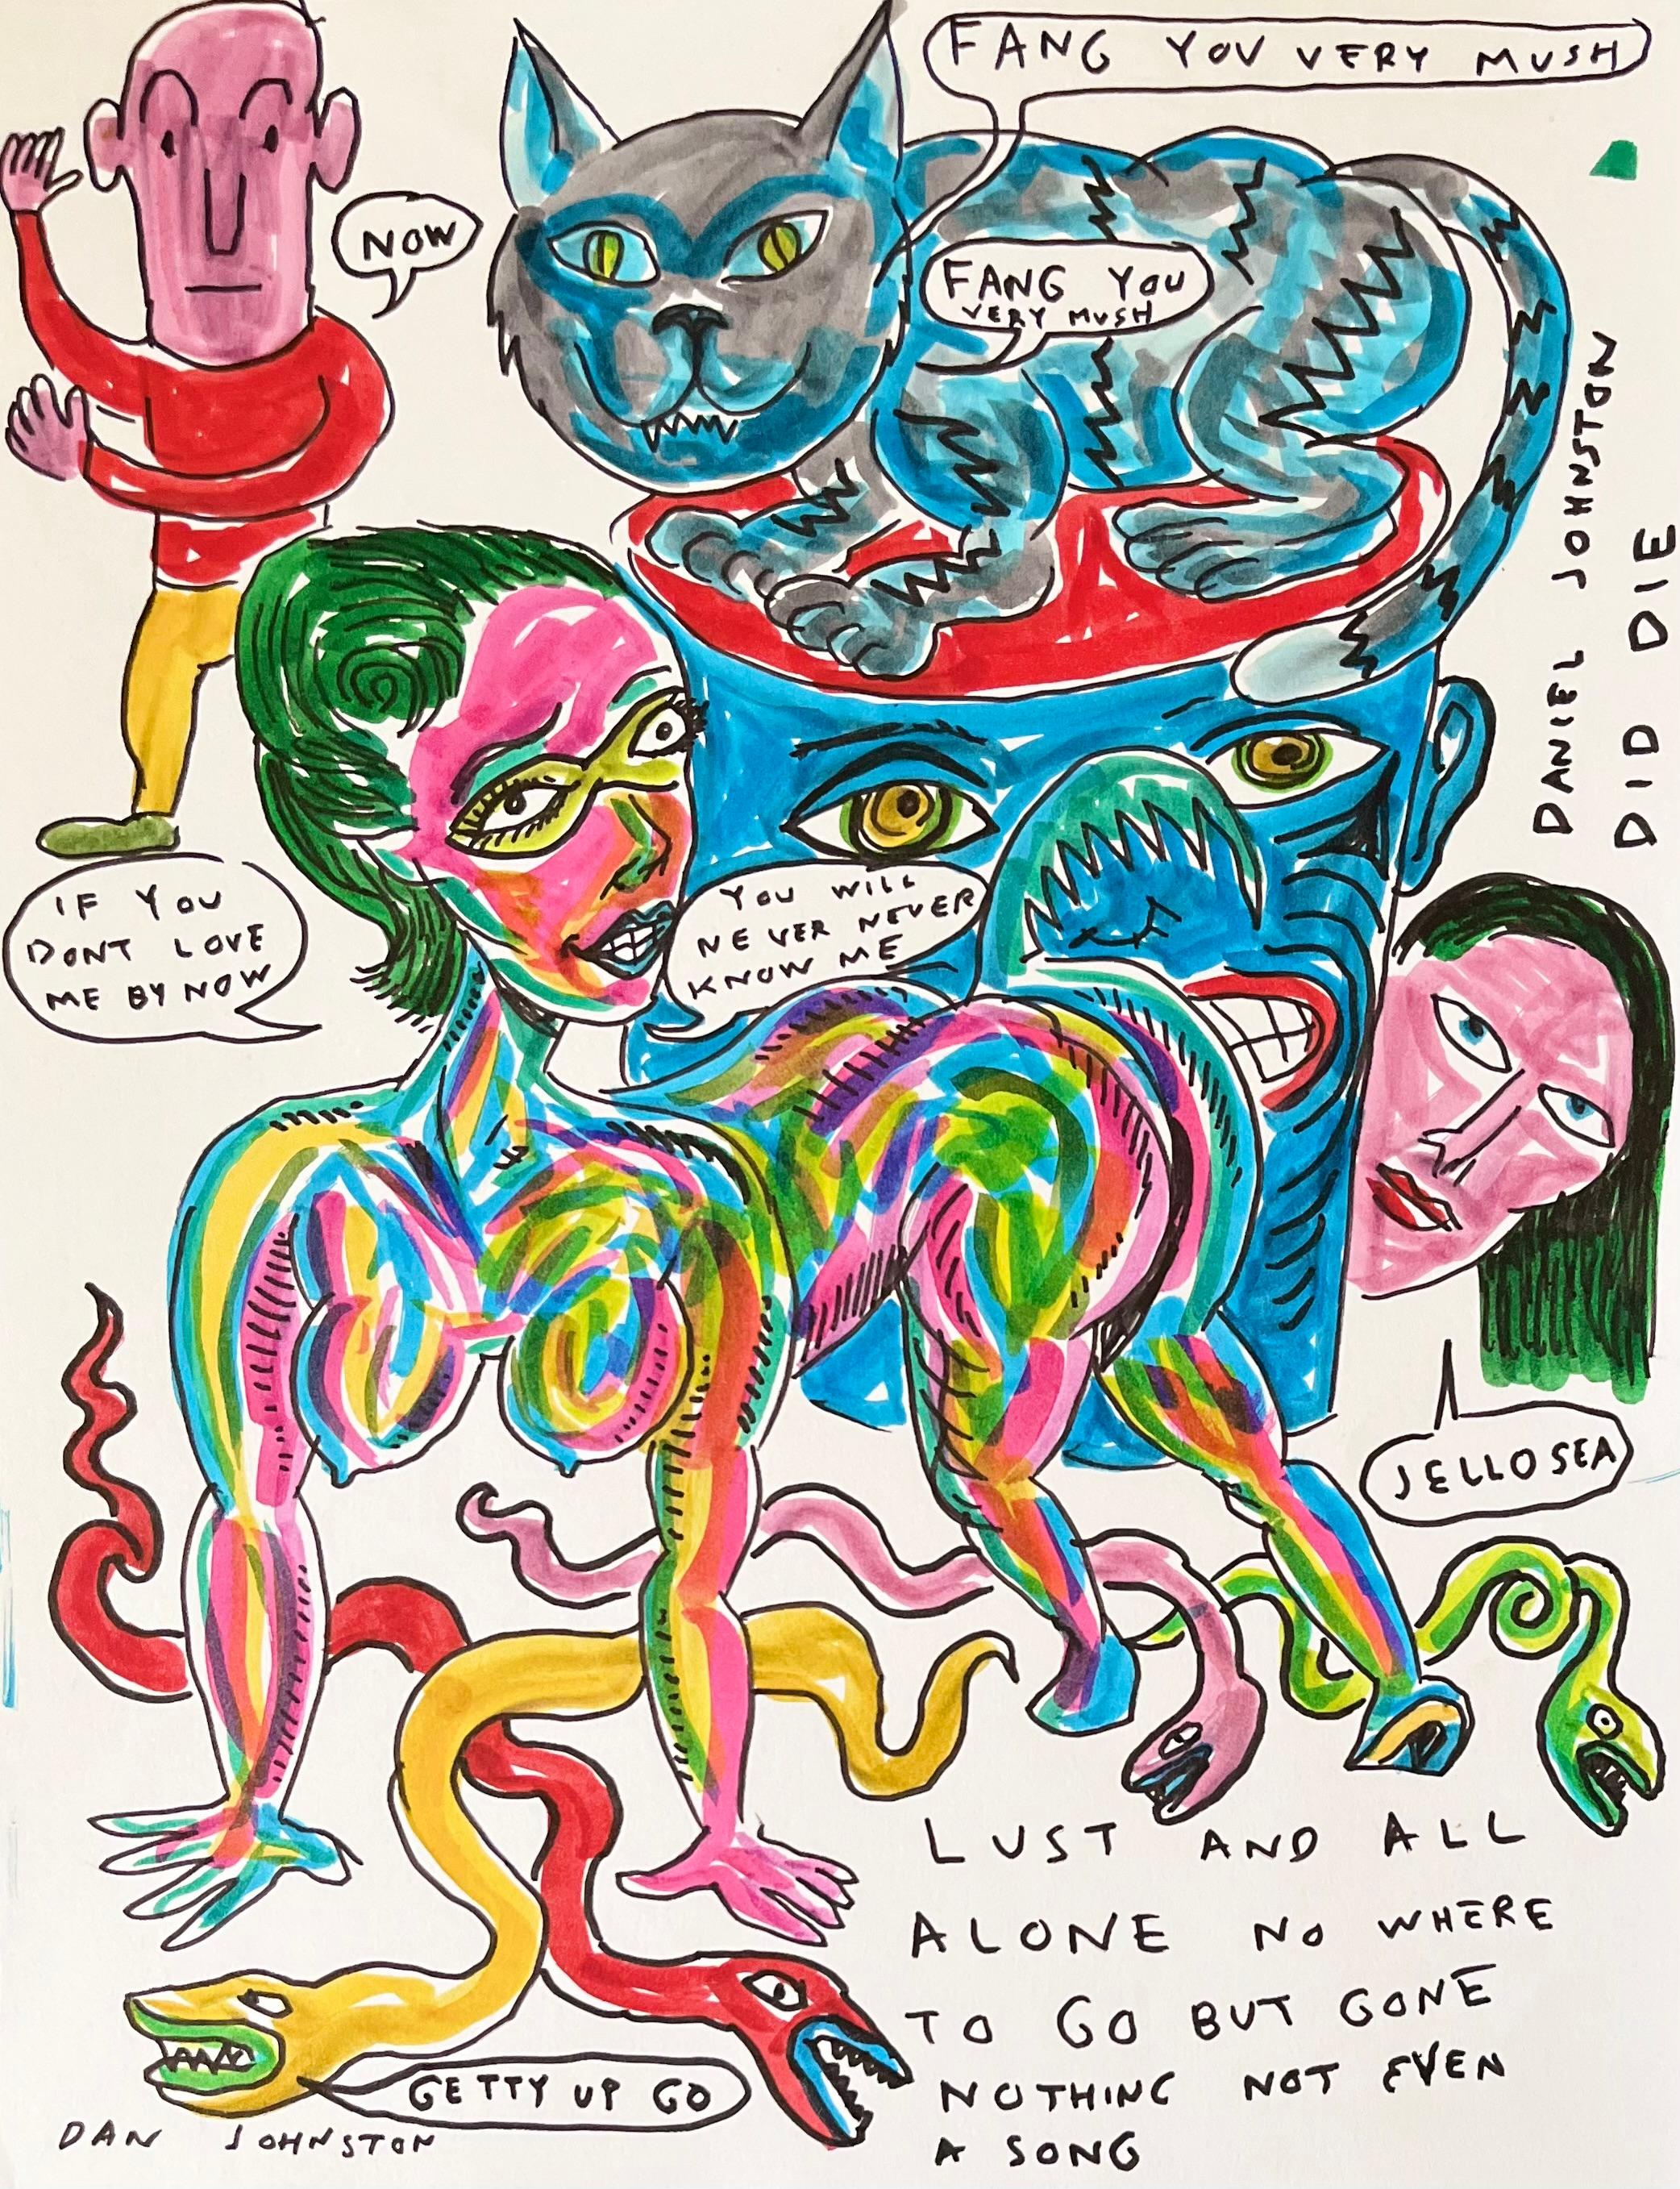 FANG YOU VERY MUSH
NOW
FANG YOU
VERY MUSH
DANIEL JOHNSTON
DID DIE
IF YOU
DONT LOVE
ME BY NOW
YOU WILL
NEVER NEVER
KNOW ME
JELLO SEA
LUST AND ALL
ALONE NO WHERE
TO GO BUT GONE
NOTHING NOT EVEN
A SONG
GETTY UP GO
DAN JOHNSTON